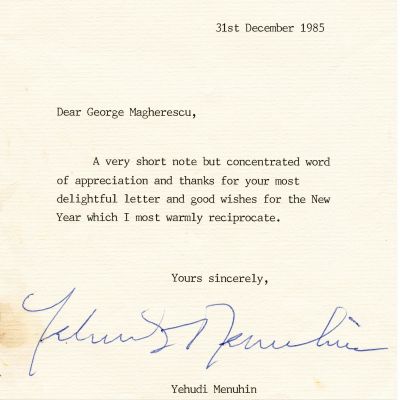 31st December 1985
Dear George Magherescu,
A very short note but concentrated word
of appreciation and thanks for your most
delightful letter and good wishes for the New
Year which I most warmly reciprocate.
Yours sincerely,
Yehudi Menuhin
Yehudi Menuhin